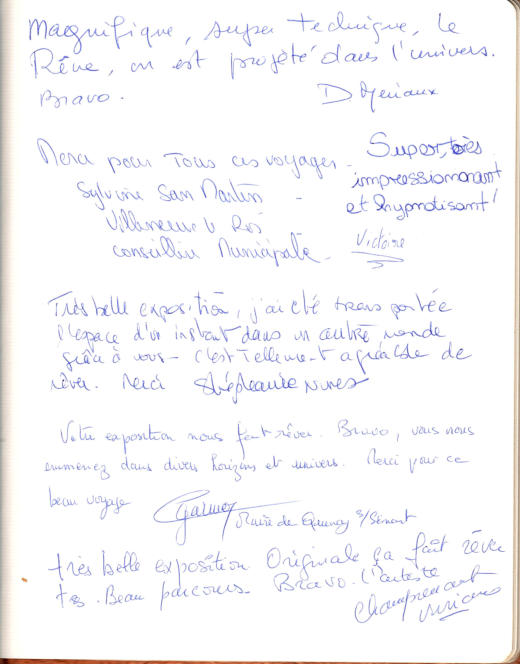 Magnifique, super technique, le
Rêve, on est projeté dans l'univers.
Bravo.
D
Merci pour Tous ces voyages -
Sylvine San Martin -
Villeneuve
Conseillère Municipale -
Super, très
impressionnant
et hypnotisant!
Victoire
Très belle exposition, j'ai été transportée
l'espace d'un instant dans un autre monde
grâce à vous - c'est Tellement agréable de
rêver. Merci Stéphanie Nunes
Votre exposition nous fait rêver. Bravo, vous nous
emmenez dans divers horizons et univers. Merci pour ce
beau voyage
Maire de s/Sénart
très belle exposition Originale ça fait rêver
Beau parcours. Bravo. l'artiste